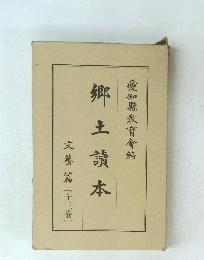 愛知縣教育會編
郷土讀本
文藝篇（全一卷）